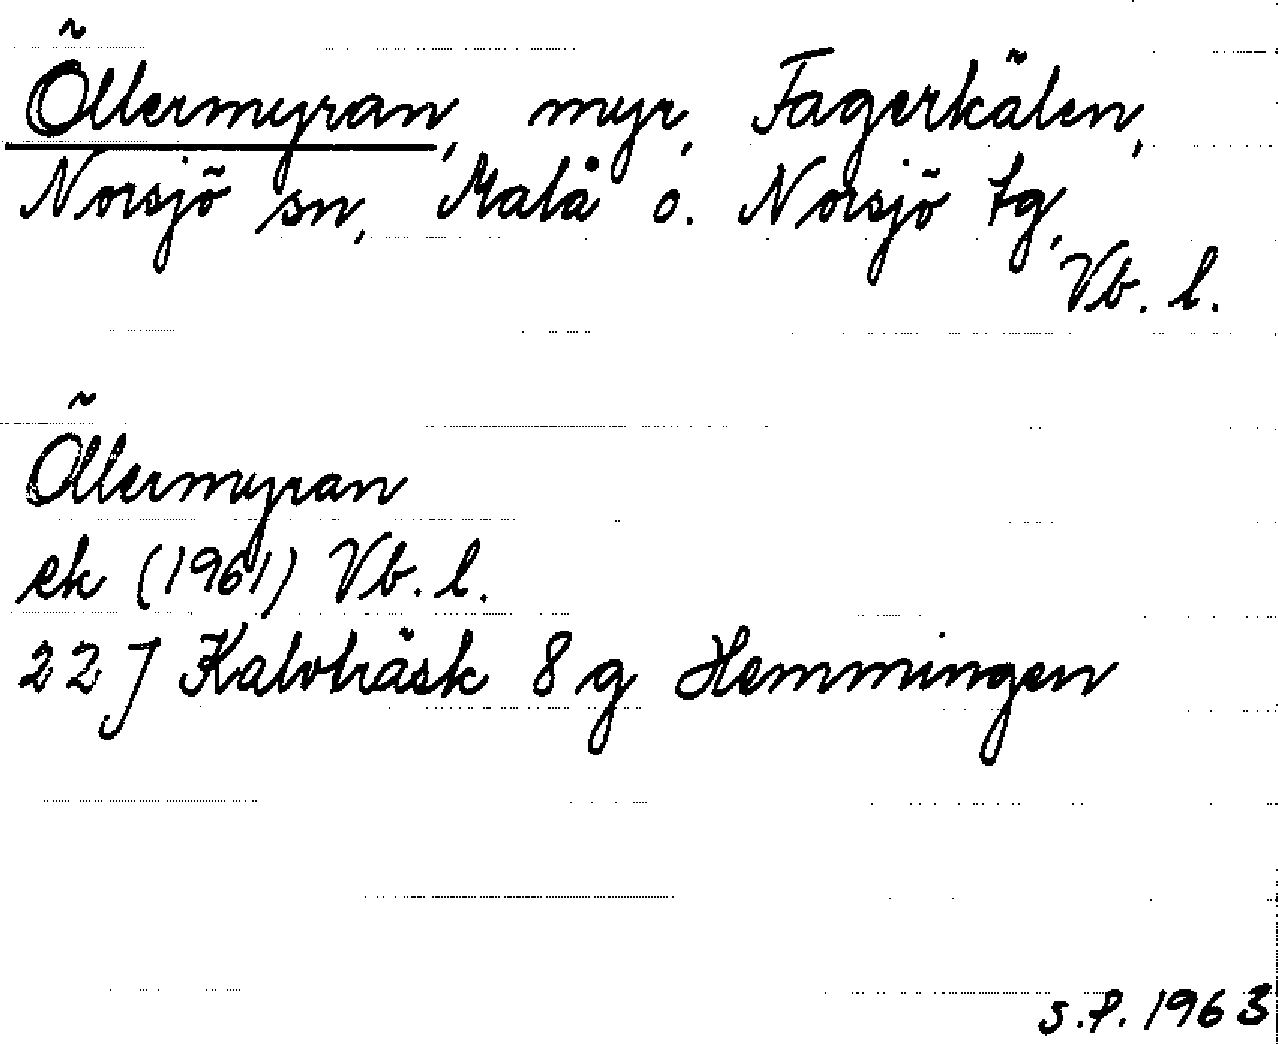 Öllermyran, myr, Fagerkälen,
Norsjö sn, Malå o. Norsjö tg,
Vb. l.
Öllermyran
ek (1961) Vb. l.
22 J Kalvträsk 8 g Hemmingen
S.P. 1963